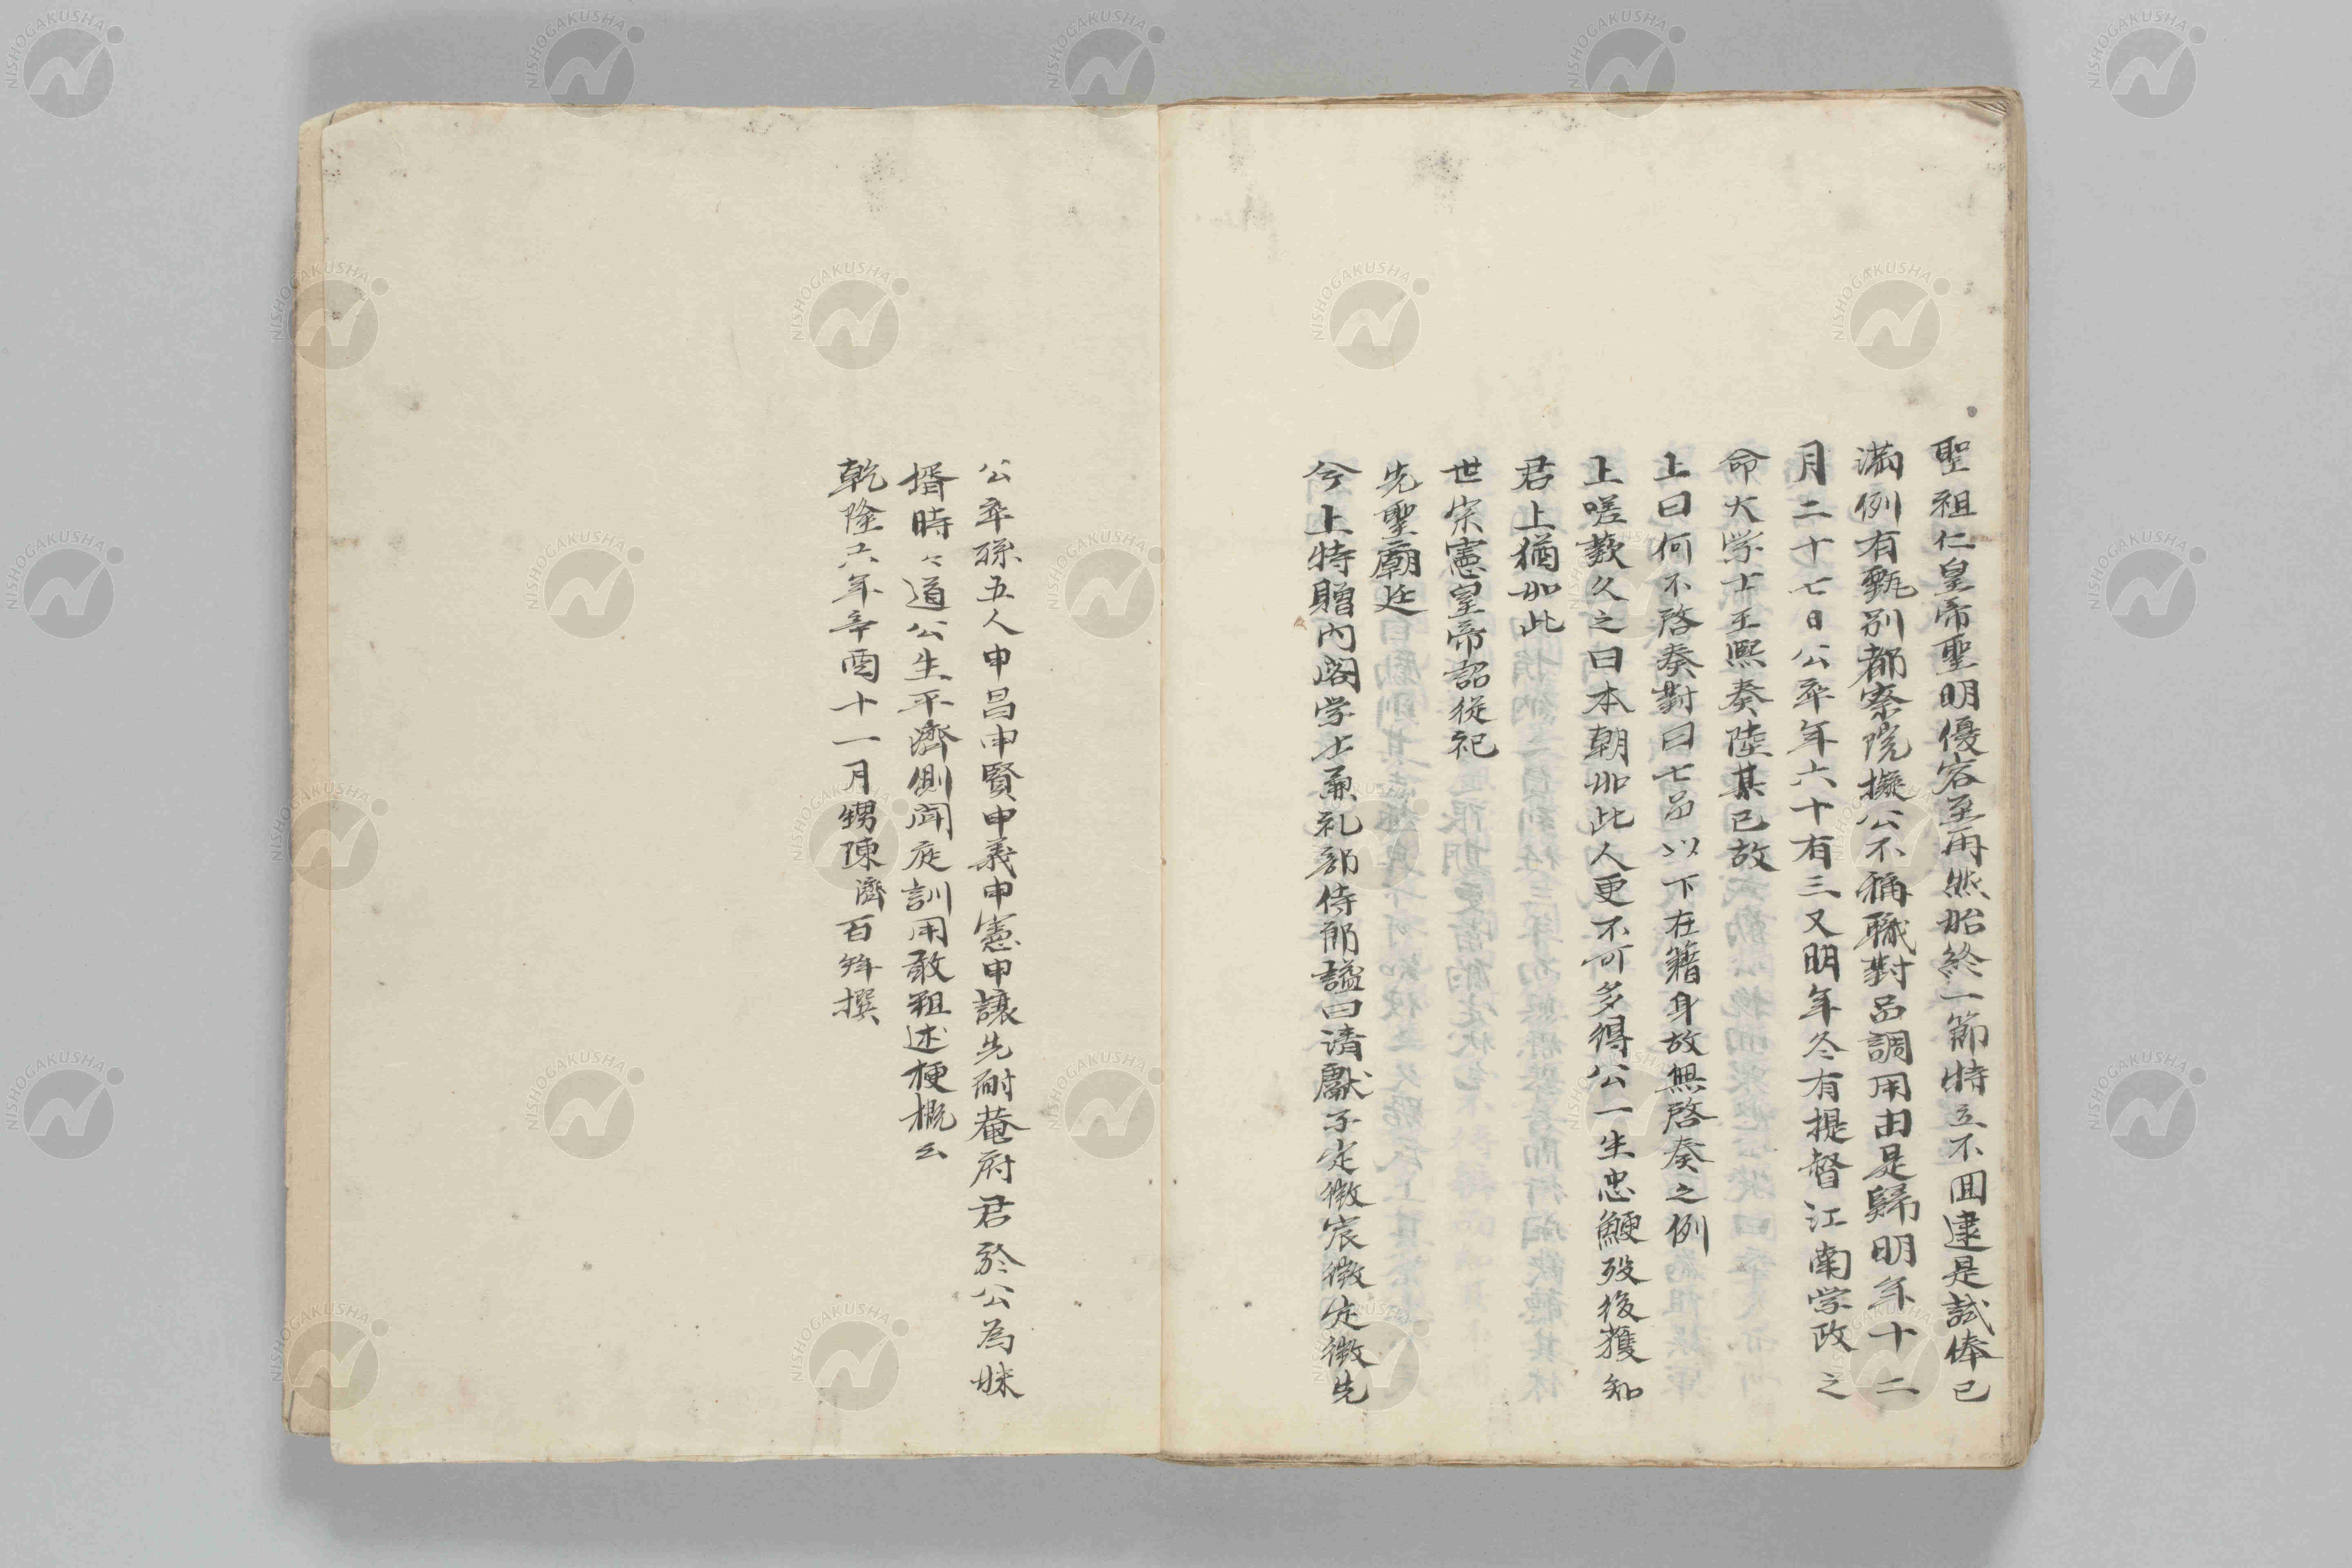 聖祖仁皇帝聖明優容至再然始終一節特立不囬逮是試俸已
満例有甄别都察院擬公不稱職對品調用由是歸明年十二
月二十七日公卒年六十有三又明年冬有提督江南学政之
命大学士王熙奏陸某已故
上曰何不啓奏對曰七品以下在籍身故無啓奏之例
上嗟歎久之曰本朝如此人更不可多得公一生忠鯁殁後獲知
君上猶如此
世宗憲皇帝詔従祀
先聖廟廷
今上特贈内閣学士兼礼部侍郎謚曰清獻子定徴宸徴先
公卒孫五人申昌申賢申義申憲申讓先耐菴府君於公為妹
壻時々道公生平濟側聞庭訓用敢粗述梗概云
乾隆六年辛酉十一月甥陳濟百拜撰
NISHOGAKUSHA